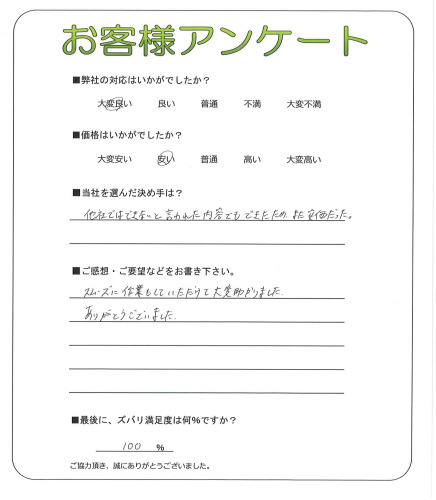 お客様アンケート
■弊社の対応はいかがでしたか？
大変良い 良い 普通 不満 大変不満
■価格はいかがでしたか？
大変安い 安い 普通 高い 大変高い
■当社を選んだ決め手は？
他社ではできないと言われた内容でもできたため。また安価だった。
■ご感想・ご要望などをお書き下さい。
スムーズに作業もしていただけて大変助かりました。
ありがとうございました。
■最後に、ズバリ満足度は何%ですか？
100 %
ご協力頂き、誠にありがとうございました。